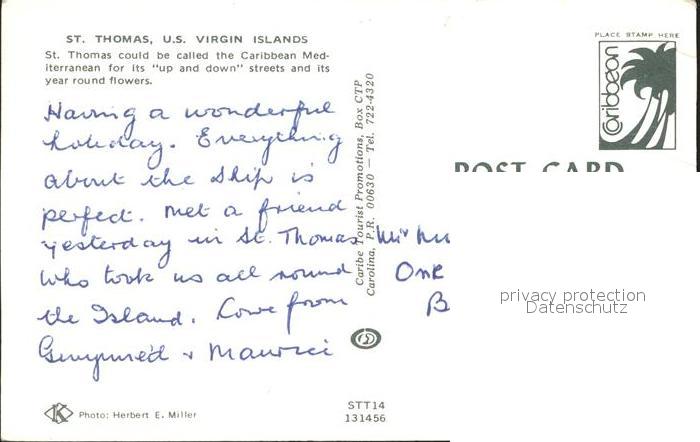 ST. THOMAS, U.S. VIRGIN ISLANDS
St. Thomas could be called the Caribbean Med-
iterranean for its "up and down" streets and its
year round flowers.
Having a wonderful
holiday. Everything
about the ship is
perfect. Met a friend
yesterday in St. Thomas
who took us all round
the Island. Love from
Gwynned + Maurice
Photo: Herbert E. Miller
STT14
131456
Caribe Tourist Promotions, Box CTP
Carolina, P.R. 00630 — Tel. 722-4320
PLACE STAMP HERE
Caribbean
POST CARD
Mr
One
B
privacy protection
Datenschutz